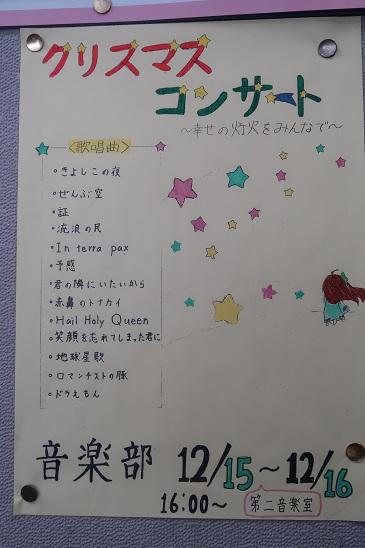 クリスマス
コンサート
～幸せの灯火をみんなで～
<歌唱曲>
。きよしこの夜
。ぜんぶ空
。証
。流浪の民
。In terra pax
。予感
。君の隣にいたいから
。赤鼻のトナカイ
。Hail Holy Queen
。笑顔を忘れてしまった君に
。地球星歌
。ロマンチストの豚
。ドラえもん
音楽部 12/15～12/16
16:00～ 第二音楽室